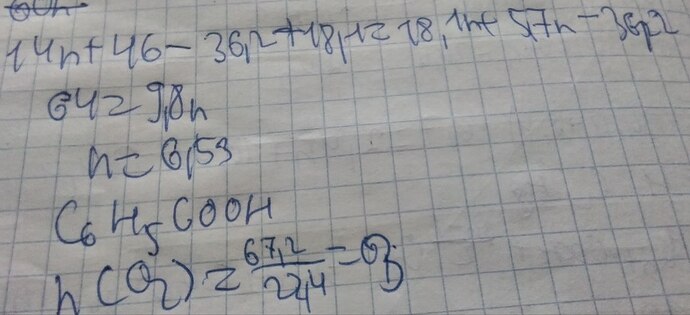 14n+46-36,2+18,1=18,1n+5,7n-36,2
64=9,8n
n=6,53
C6H5COOH
n(O2)=67,2/22,4=3